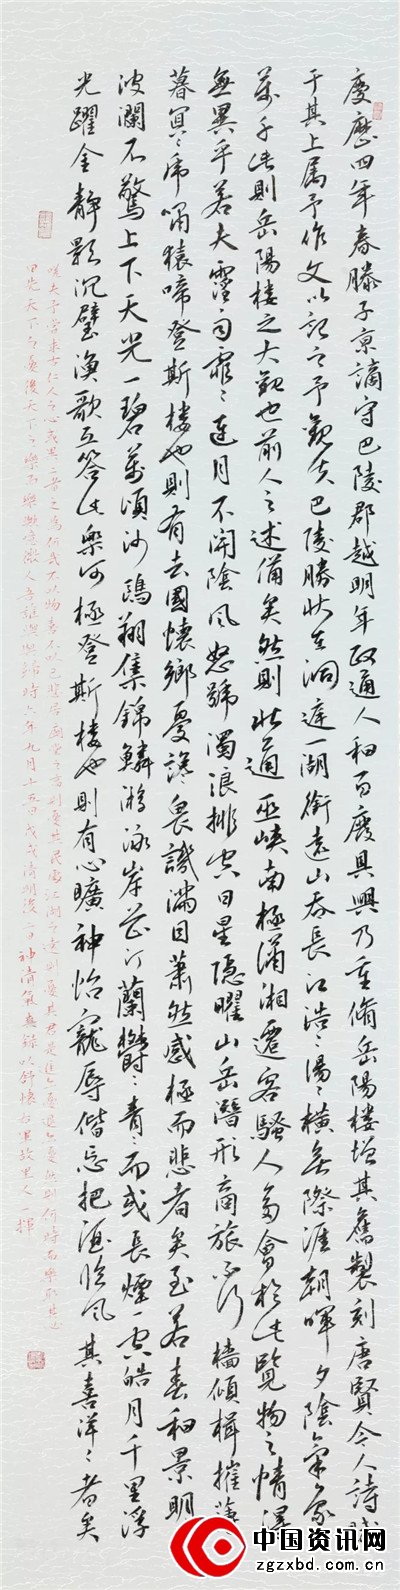 慶歷四年春滕子京謫守巴陵郡越明年政通人和百廢具興乃重脩岳陽樓增其舊製刻唐賢今人詩賦
于其上屬予作文以記之予觀夫巴陵勝狀在洞庭一湖銜遠山吞長江浩〻湯〻橫無際涯朝暉夕陰氣象
萬千此則岳陽樓之大觀也前人之述備矣然則北通巫峽南極瀟湘遷客騷人多會於此覽物之情得
無異乎若夫霪雨霏〻連月不開陰風怒號濁浪排空日星隱曜山岳潛形商旅不行檣傾楫摧薄
暮冥〻虎嘯猿啼登斯樓也則有去國懷鄉憂讒畏譏滿目蕭然感極而悲者矣至若春和景明
波瀾不驚上下天光一碧萬頃沙鷗翔集錦鱗游泳岸芷汀蘭鬱〻青〻而或長煙一空皓月千里浮
光躍金靜影沉璧漁歌互答此樂何極登斯樓也則有心曠神怡寵辱偕忘把酒臨風其喜洋〻者矣
嗟夫予嘗求古仁人之心或異二者之為何哉不以物喜不以己悲居廟堂之高則憂其民處江湖之遠則憂其君是進亦憂退亦憂然則何時而樂耶其必
曰先天下之憂後天下之樂而樂歟噫微人吾誰與歸時六年九月十五日戊戌清明後一日神清氣爽錄以舒懷右軍故里人一揮
中国资讯网
zgzxbd.com.cn